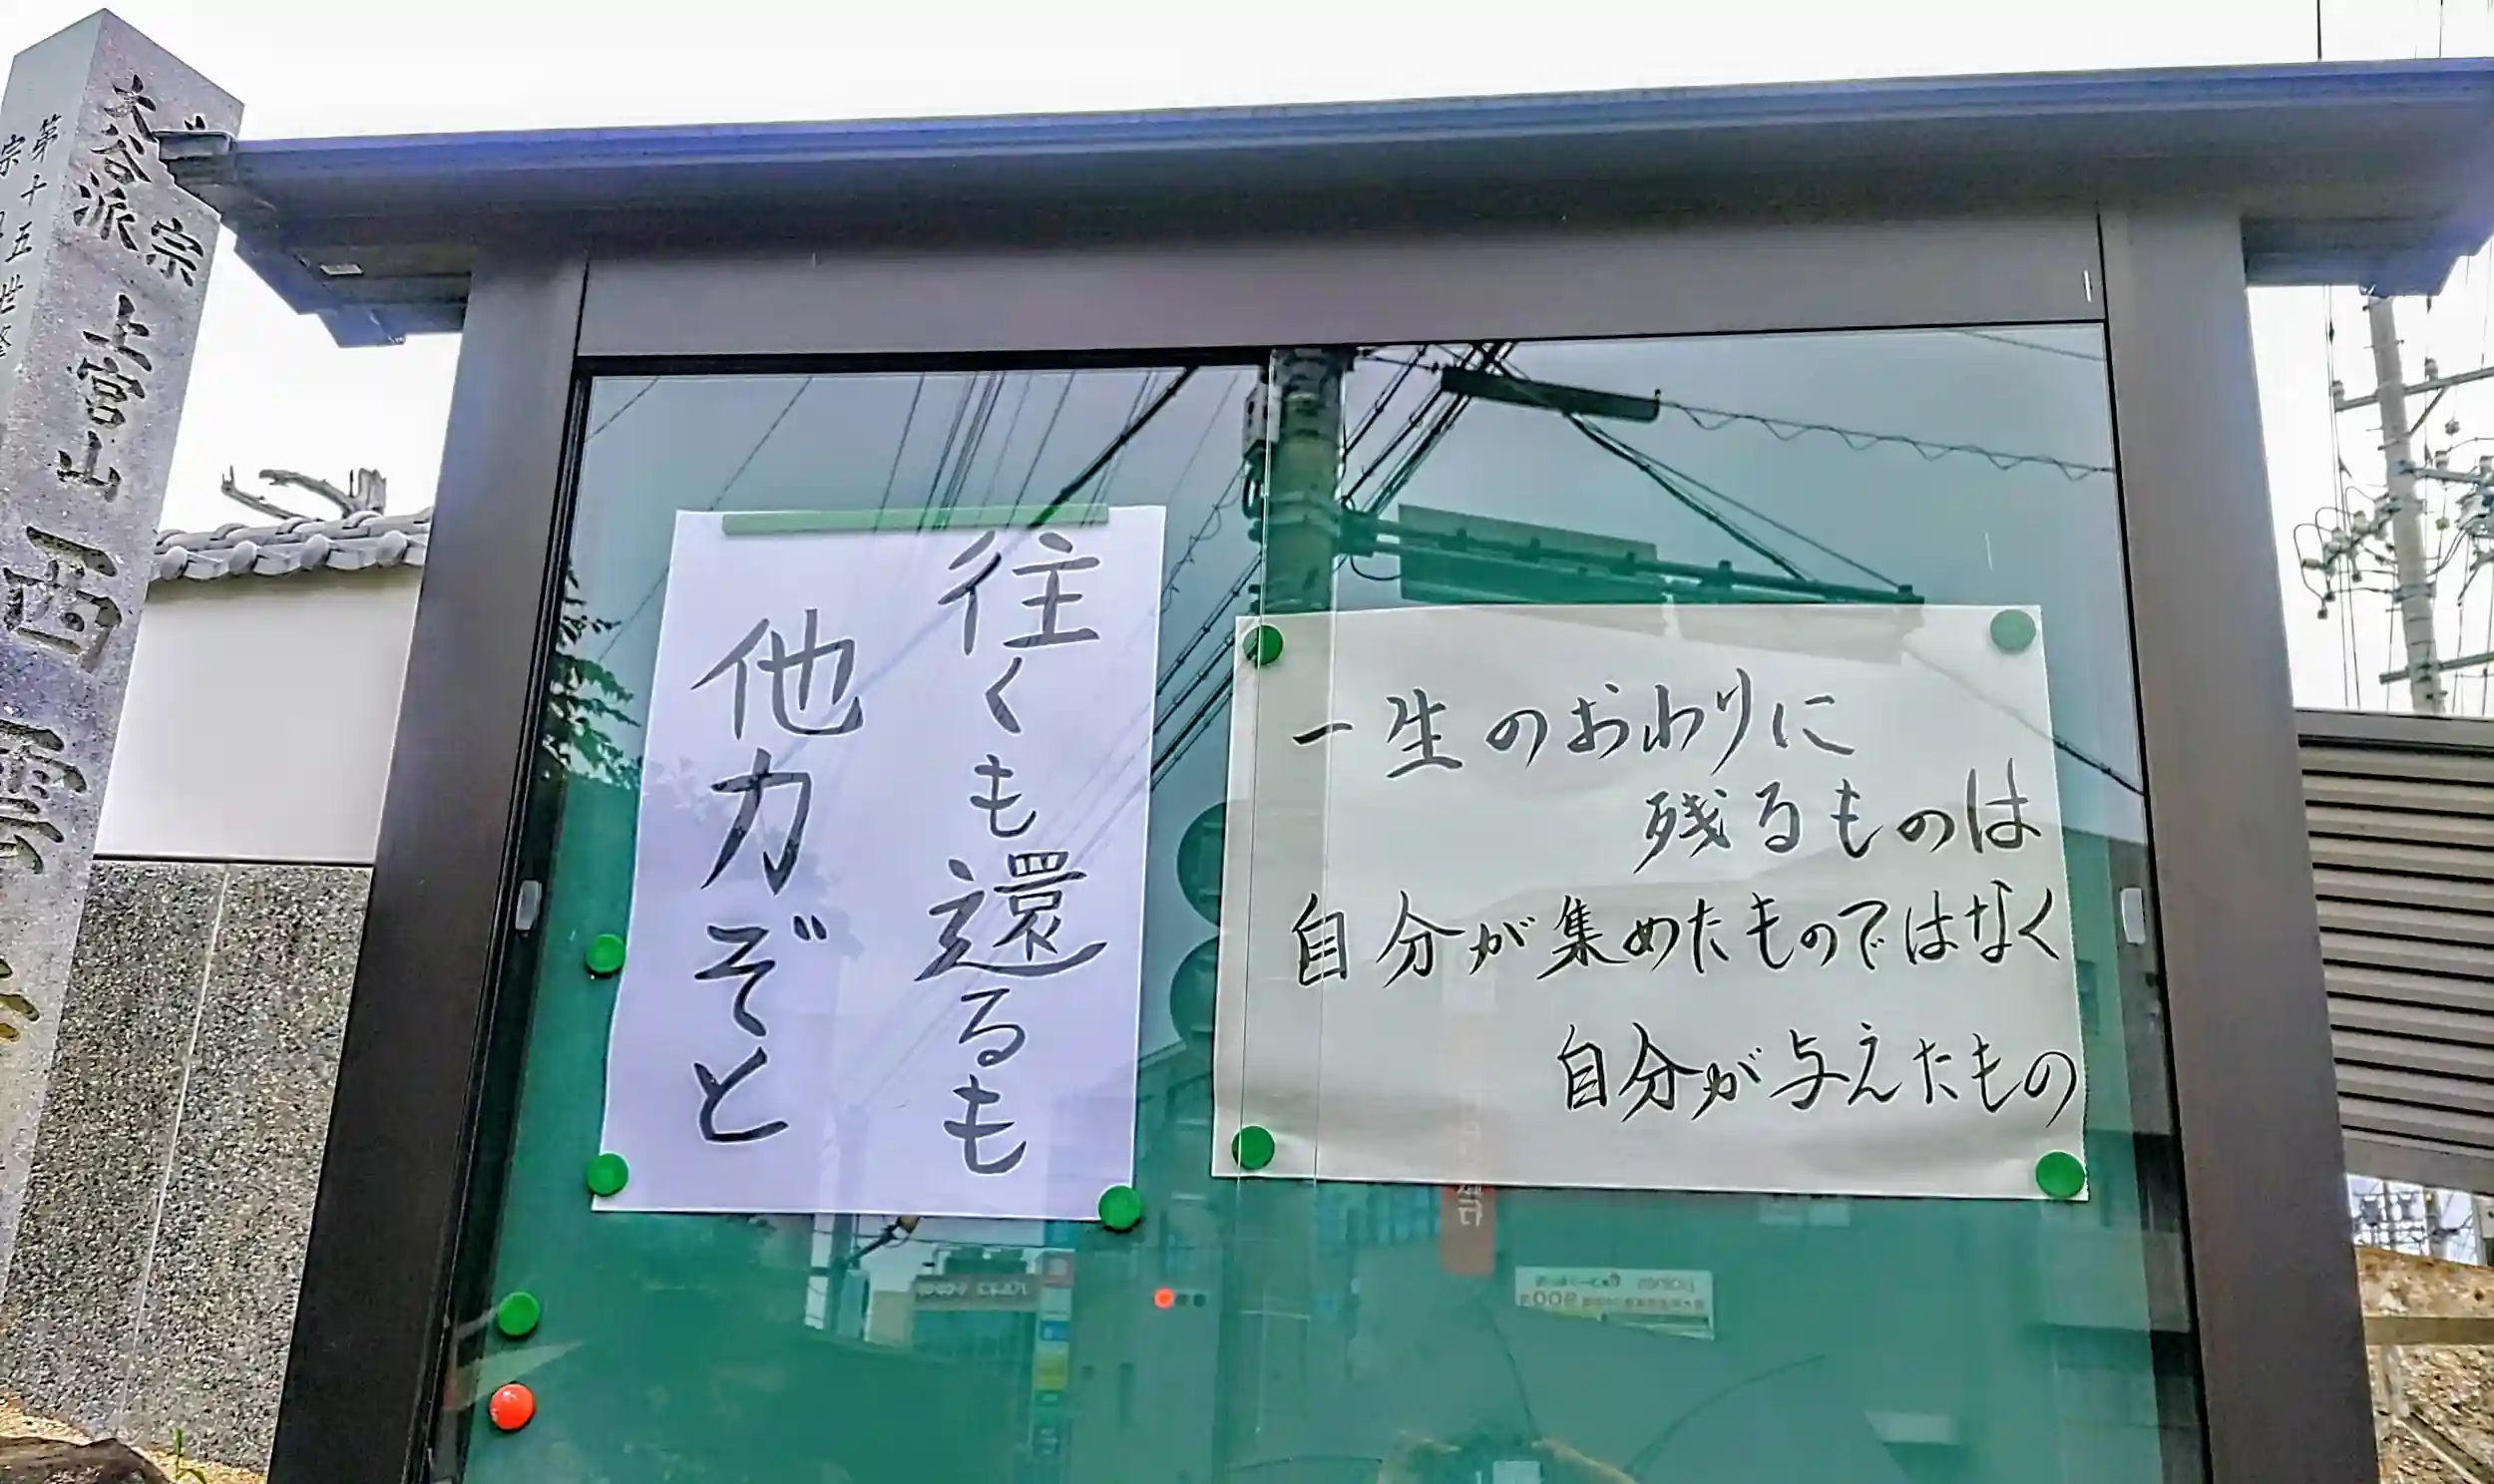 一生のおわりに
残るものは
自分が集めたものではなく
自分が与えたもの
往くも還るも
他力ぞと
宗
大谷派
上宮山
西
第十五世